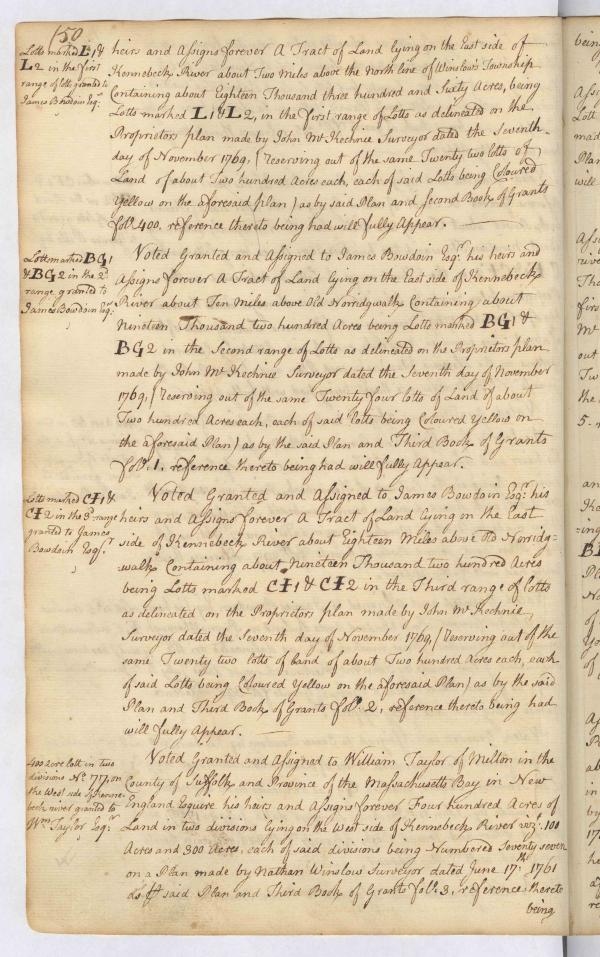 150
Lotts marked L1 &
L2 in the first
range of lotts granted to
James Bowdoin Esqr.
heirs and Assigns forever A Tract of Land lying on the East side of
Kennebeck River about Two Miles above the North line of Winslow Township
Containing about Eighteen Thousand three hundred and Sixty Acres, being
Lotts marked L1 & L2, in the first range of Lotts as delineated on the
Proprietors plan made by John Mc Kechnie Surveyor dated the Seventh
day of November 1769, (Reserving out of the same Twenty two lotts of
Land of about Two hundred Acres each, each of said Lotts being Coloured
Yellow on the aforesaid plan) as by said Plan and Second Book of Grants
folo. 400. reference thereto being had will fully Appear.
Lotts marked BG1
& BG2 in the 2d.
range granted to
James Bowdoin Esqr.
Voted Granted and Assigned to James Bowdoin Esqr. his heirs and
Assigns forever A Tract of Land lying on the East side of Kennebeck
River about Ten Miles above Old Norridgwalk Containing about
Nineteen Thousand two hundred Acres being Lotts marked BG1 &
BG2 in the Second range of Lotts as delineated on the Proprietors plan
made by John Mc Kechnie Surveyor dated the Seventh day of November
1769, (Reserving out of the same Twenty four lotts of Land of about
Two hundred Acres each, each of said lotts being Coloured Yellow on
the aforesaid Plan) as by the said Plan and Third Book of Grants
folo. 1. reference thereto being had will fully Appear.
Lotts marked CI1 &
CI2 in the 3d. range
granted to James
Bowdoin Esqr.
Voted Granted and Assigned to James Bowdoin Esqr. his
heirs and Assigns forever A Tract of Land lying on the East
side of Kennebeck River about Eighteen Miles above Old Norridg=
=walk Containing about Nineteen Thousand two hundred Acres
being Lotts marked CI1 & CI2 in the Third range of lotts
as delineated on the Proprietors plan made by John Mc Kechnie
Surveyor dated the Seventh day of November 1769, (Reserving out of the
same Twenty two lotts of Land of about Two hundred Acres each, each
of said Lotts being Coloured Yellow on the aforesaid Plan) as by the said
Plan and Third Book of Grants folo. 2, reference thereto being had
will fully Appear.
400 Acre lott in two
divisions No. 77, on
the West side of Kenne-
beck river granted to
Wm. Taylor Esqr.
Voted Granted and Assigned to William Taylor of Milton in the
County of Suffolk and Province of the Massachusetts Bay in New
England Esquire his heirs and Assigns forever Four hundred Acres of
Land in two divisions lying on the West side of Kennebeck River vizt. 100
Acres and 300 Acres, each of said divisions being Numbered Seventy seven
on a Plan made by Nathan Winslow Surveyor dated June 17th. 1761
said Plan and Third Book of Grants folo. 3, reference thereto
being